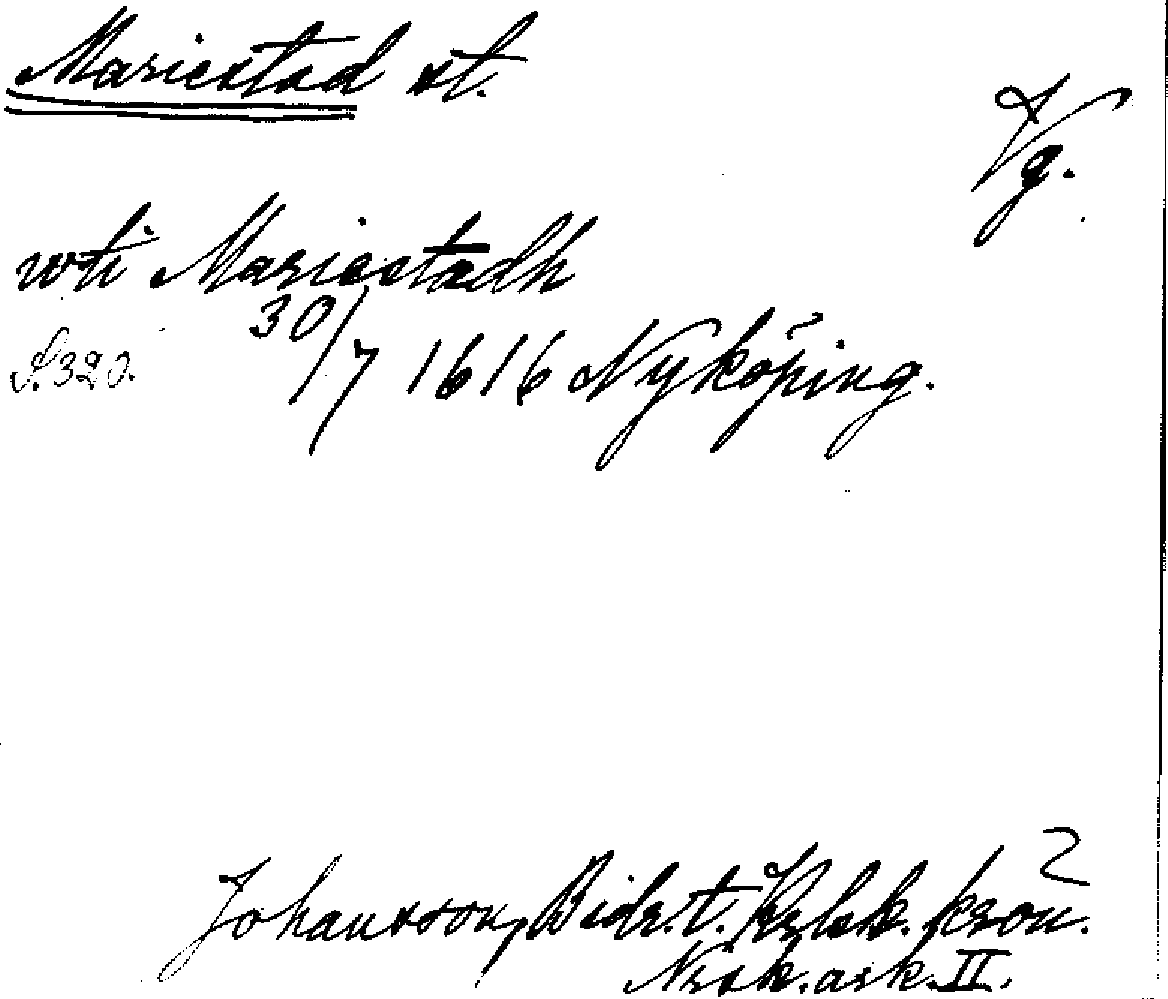 Mariestad st.
Vg.
wti Mariestadh
S. 320. 30/7 1616 Nyköping.
2
Johansson, Bidr. t. krön.
ark. II.